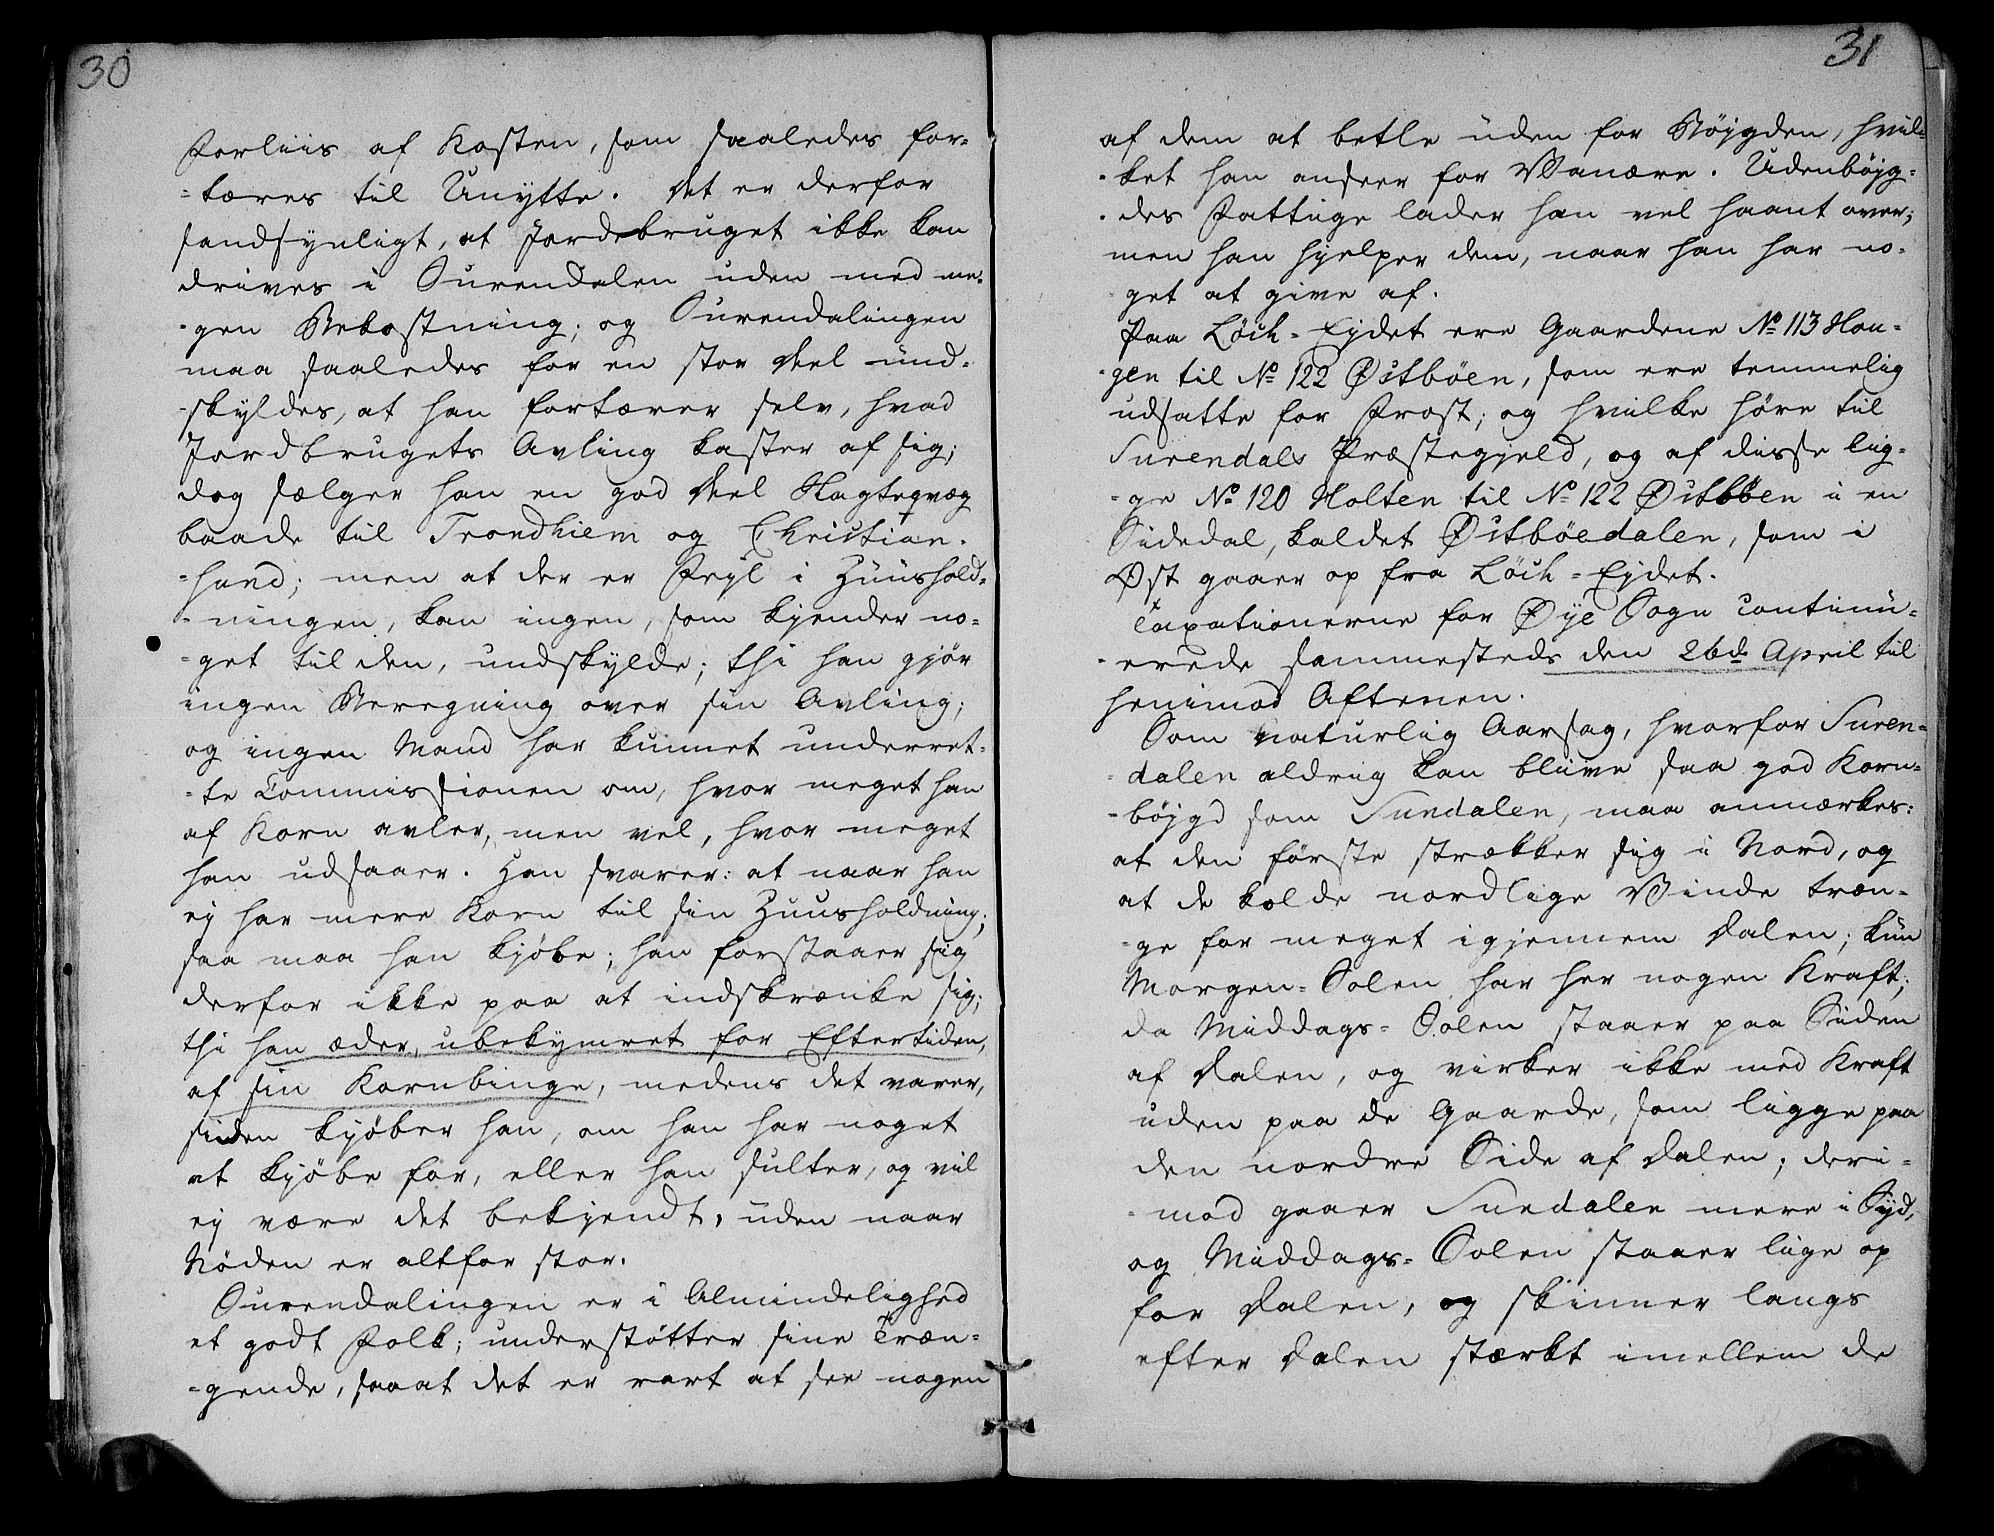 30
Forliis af Kosten, som saaledes for-
-tæres til Unytte. Det er derfor
sandsynligt, at Jordebruget ikke kan
drives i Surendalen uden med me-
-gen Bekostning; og Surendalingen
maa saaledes for en stor Deel und-
-skyldes, at han fortærer selv, hvad
Jordbrugets Avling kaster af sig;
dog sælger han en god Deel Slagteqvæg
baade til Trondhiem og Christian-
-sund; men at der er Fejl i Huushold-
-ningen, kan ingen, som kjender no-
-get til den, undskylde; thi han gjør
ingen Beregning over sin Avling;
og ingen Mand har kunnet underret-
-te Commissionen om, hvor meget han
af Korn avler, men vel, hvor meget
han udsaaer. Han svarer: at naar han
ej har mere Korn til sin Huusholdning,
saa maa han kjöbe; han forstaaer sig
derfor ikke paa at indskrænke sig;
thi han æder, ubekymret for Eftertiden,
af sin Kornbinge, medens det varer,
siden kjöber han, om han har noget
at kjöbe for, eller han sulter, og vil
ej være det bekjendt, uden naar
Nöden er altfor stor.
Surendalingen er i Almindelighed
et godt Folk; understøtter sine Træn-
-gende, saa at det er rart at see nogen
31
af dem at betle uden for Böjgden, hvil-
-ket han anseer for Vanære. Udenböjg-
-des Fattige lader han vel haant over;
men han hjelper dem, naar han har no-
get at give af.
Paa Löck-Ejdet ere Gaardene No 113 Hou-
-gen til No 122 Østböen, som ere temmelig
udsatte for Frost; og hvilke höre til
Surendals Præstegjeld, og af disse lig-
-ge No 120 Holten til No 122 Østböen i en
Sidedal, kaldet Østböedalen, som i
Øst gaaer op fra Löck-Ejdet.
Taxationerne for Øye Sogn continu-
-erede sammesteds den 26de April til
henimod Aftenen.
Som naturlig Aarsag, hvorfor Suren-
-dalen aldrig kan blive saa god Korn-
-böjgd som Sundalen, maa anmærkes:
at den förste strækker sig i Nord, og
at de kolde nordlige Vinde træn-
-ge for meget igjennem Dalen; kun
Morgen-Solen har her nogen Kraft,
da Middags-Solen staaer paa Siden
af Dalen, og virker ikke med Kraft
uden paa de Gaarde, som ligge paa
den nordre Side af Dalen; deri-
-mod gaaer Sundalen mere i Syd,
og Middags-Solen staaer lige op
for Dalen, og skinner langs
efter Dalen stærkt imellem de